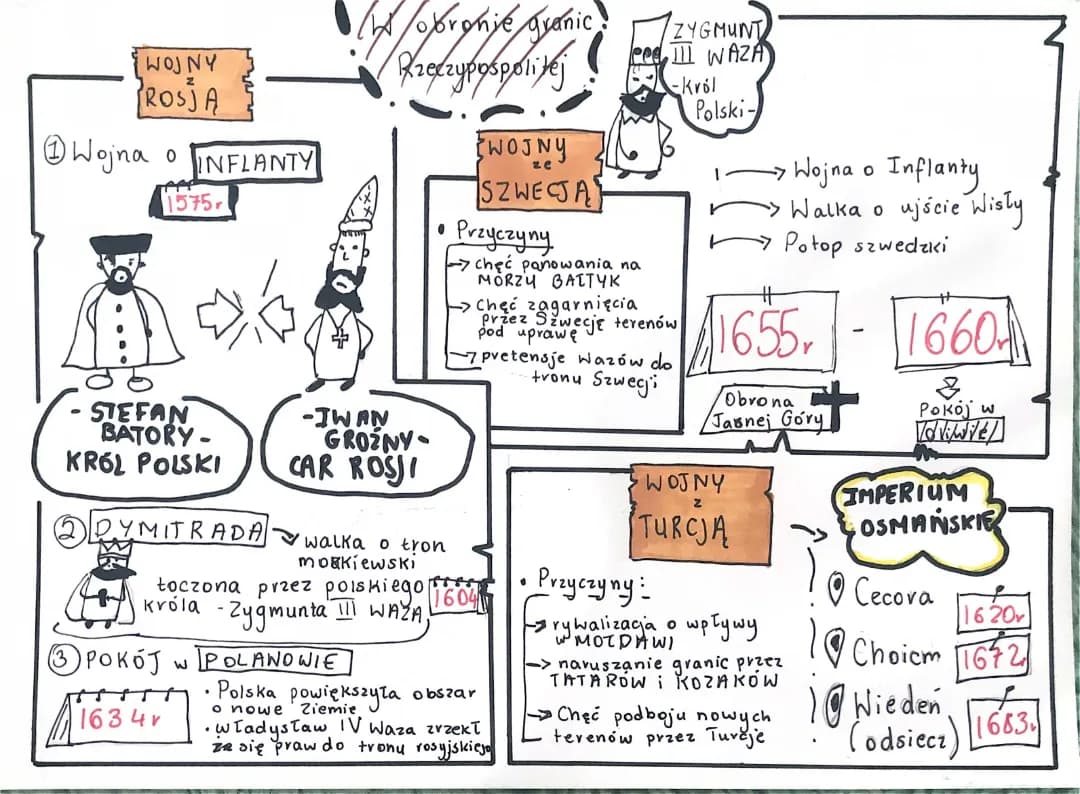 W obronie granic
Rzeczypospolitej
WOJNY
z
ROSJĄ
① Wojna o INFLANTY
1575r
- STEFAN
BATORY -
KRÓL POLSKI
- IWAN
GROŹNY -
CAR ROSJI
② DYMITRADA
walka o tron
moskiewski
toczona przez polskiego
króla - Zygmunta III WAZA
1604
③ POKÓJ w POLANOWIE
1634r
• Polska powiększyła obszar
o nowe ziemie
• Władysław IV Waza zrzekł
się praw do tronu rosyjskiego
ZYGMUNT
III WAZA
- Król
Polski -
WOJNY
ze
SZWECJĄ
• Przyczyny
→ chęć panowania na
MORZU BAŁTYK
→ Chęć zagarnięcia
przez Szwecję terenów
pod uprawę
→ pretensje Wazów do
tronu Szwecji
→ Wojna o Inflanty
→ Walka o ujście Wisły
→ Potop szwedzki
1655r - 1660r
Obrona
Jasnej Góry
Pokój w
WOJNY
z
TURCJĄ
IMPERIUM
OSMAŃSKIE
• Przyczyny:
→ rywalizacja o wpływy
w MOŁDAWI
→ naruszanie granic przez
TATARÓW i KOZAKÓW
→ Chęć podboju nowych
terenów przez Turcję
Cecora 1620r
Choicm 1672r
Wiedeń
(odsiecz) 1683r